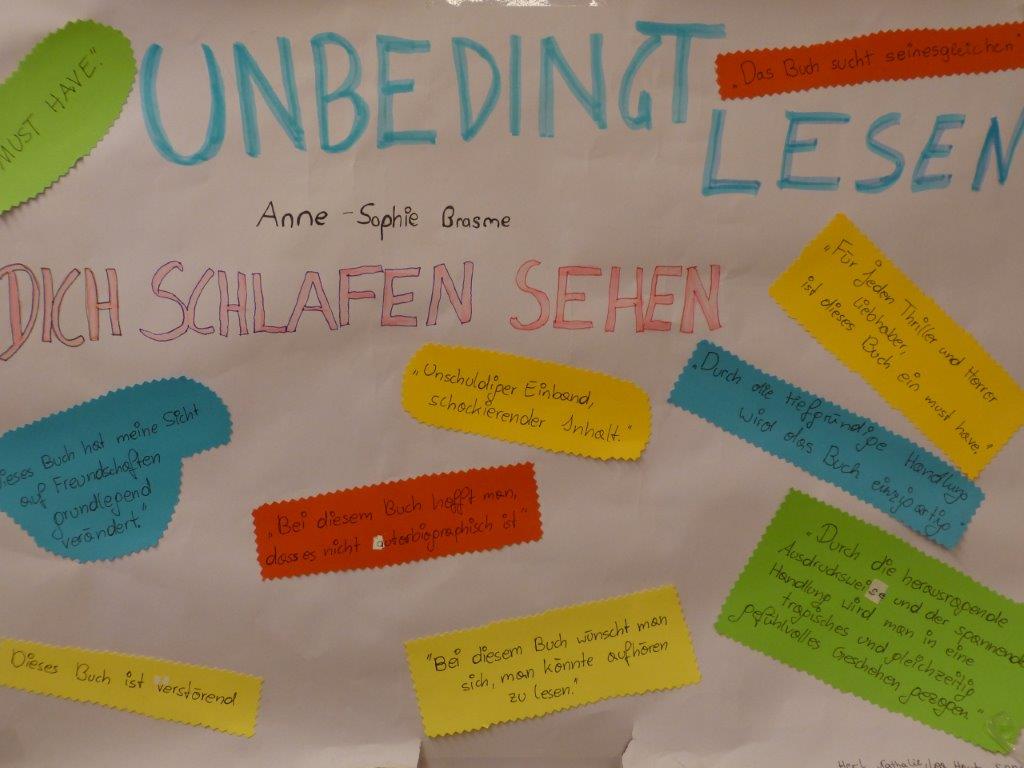 MUST HAVE."
UNBEDINGT
LESEN
„Das Buch sucht seinesgleichen"
Anne-Sophie Brasme
DICH SCHLAFEN SEHEN
„Für jeden Thriller und Horror
liebhaber,
ist dieses Buch ein must have."
„Unschuldiger Einband,
schockierender Inhalt."
„Durch die tiefgründige Handlung
wird das Buch einzigartig"
Dieses Buch hat meine Sicht
auf Freundschaften
grundlegend
verändert."
"Bei diesem Buch hofft man,
dass es nicht autorbiographisch ist"
„Durch die herausragende
Ausdrucksweise und der spannende
Handlung wird man in eine
tragisches und gleichzeitig
gefühlvolles Geschehen gezogen."
Dieses Buch ist verstörend
"Bei diesem Buch wünscht man
sich, man könnte aufhören
zu lesen."
Nathalie,